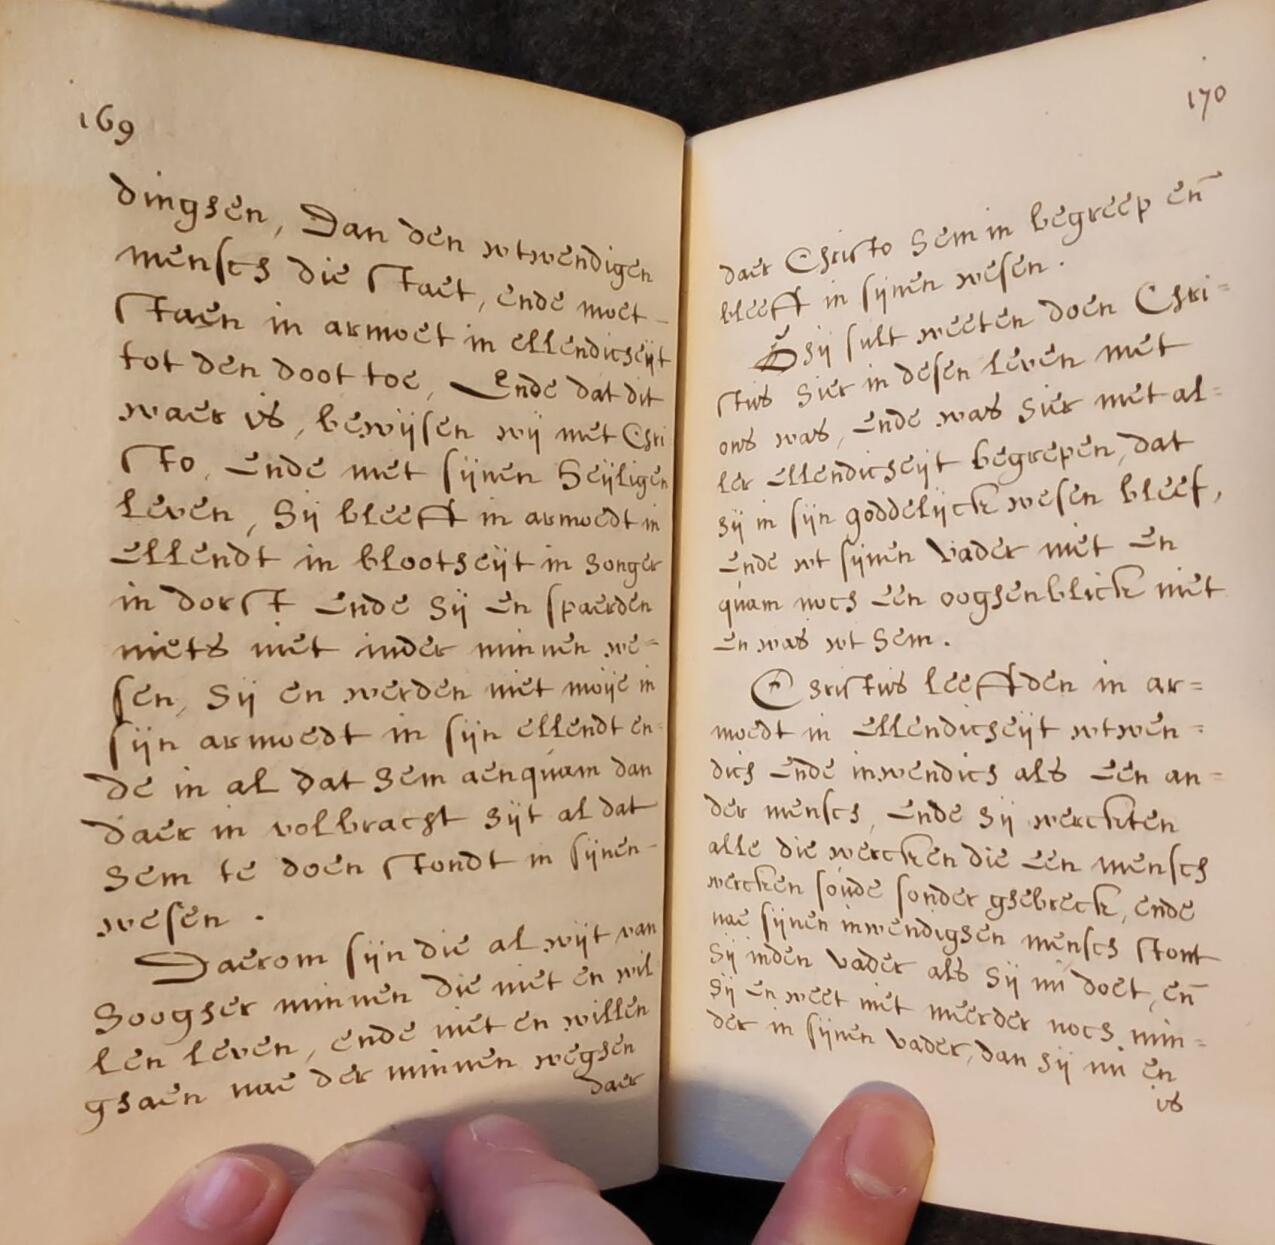 169
dinghen, Dan den wtwendigen
mensch die staet, ende moet
staen in armoet in ellendicheijt
tot den doot toe, Ende dat dit
waer is, bewijsen wij met Chri
sto, Ende met sijnen heijligen
leven, hij bleeff in armoedt in
Ellendt in blootheijt in honger
in dorst Ende hij En spaerden
niets niet inder minnen we-
sen, hij en werden niet moije in
sijn armoedt in sijn ellendt en-
de in al dat hem aenquam dan
daer in volbracht hijt al dat
hem te doen stondt in sijnen-
wesen .
Daerom sijn die al wijt van
hoogher minnen die niet en wil
len leven, ende niet en willen
ghaen nae der minnen weghen
daer
170
daer Christo hem in begreep en̄
bleeff in sijnen wesen.
Ghij sult weeten doen Chri=
stus hier in desen leven met
ons was, Ende was hier met al=
ler Ellendicheijt begrepen, dat
hij in sijn goddelijck wesen bleef,
Ende wt sijnen vader niet En
quam noch Een ooghenblick niet
En was wt hem.
Christus leeffden in ar=
moedt in Ellendicheijt wtwen=
dich Ende inwendich als Een an=
der mensch, Ende hij werckten
alle die wercken die Een mensch
wercken soude sonder ghebreck, ende
nae sijnen inwendighen mensch stont
hij inden vader als hij nu doet, en̄
hij En weet niet meerder noch min=
der in sijnen vader, dan hij nu En
is